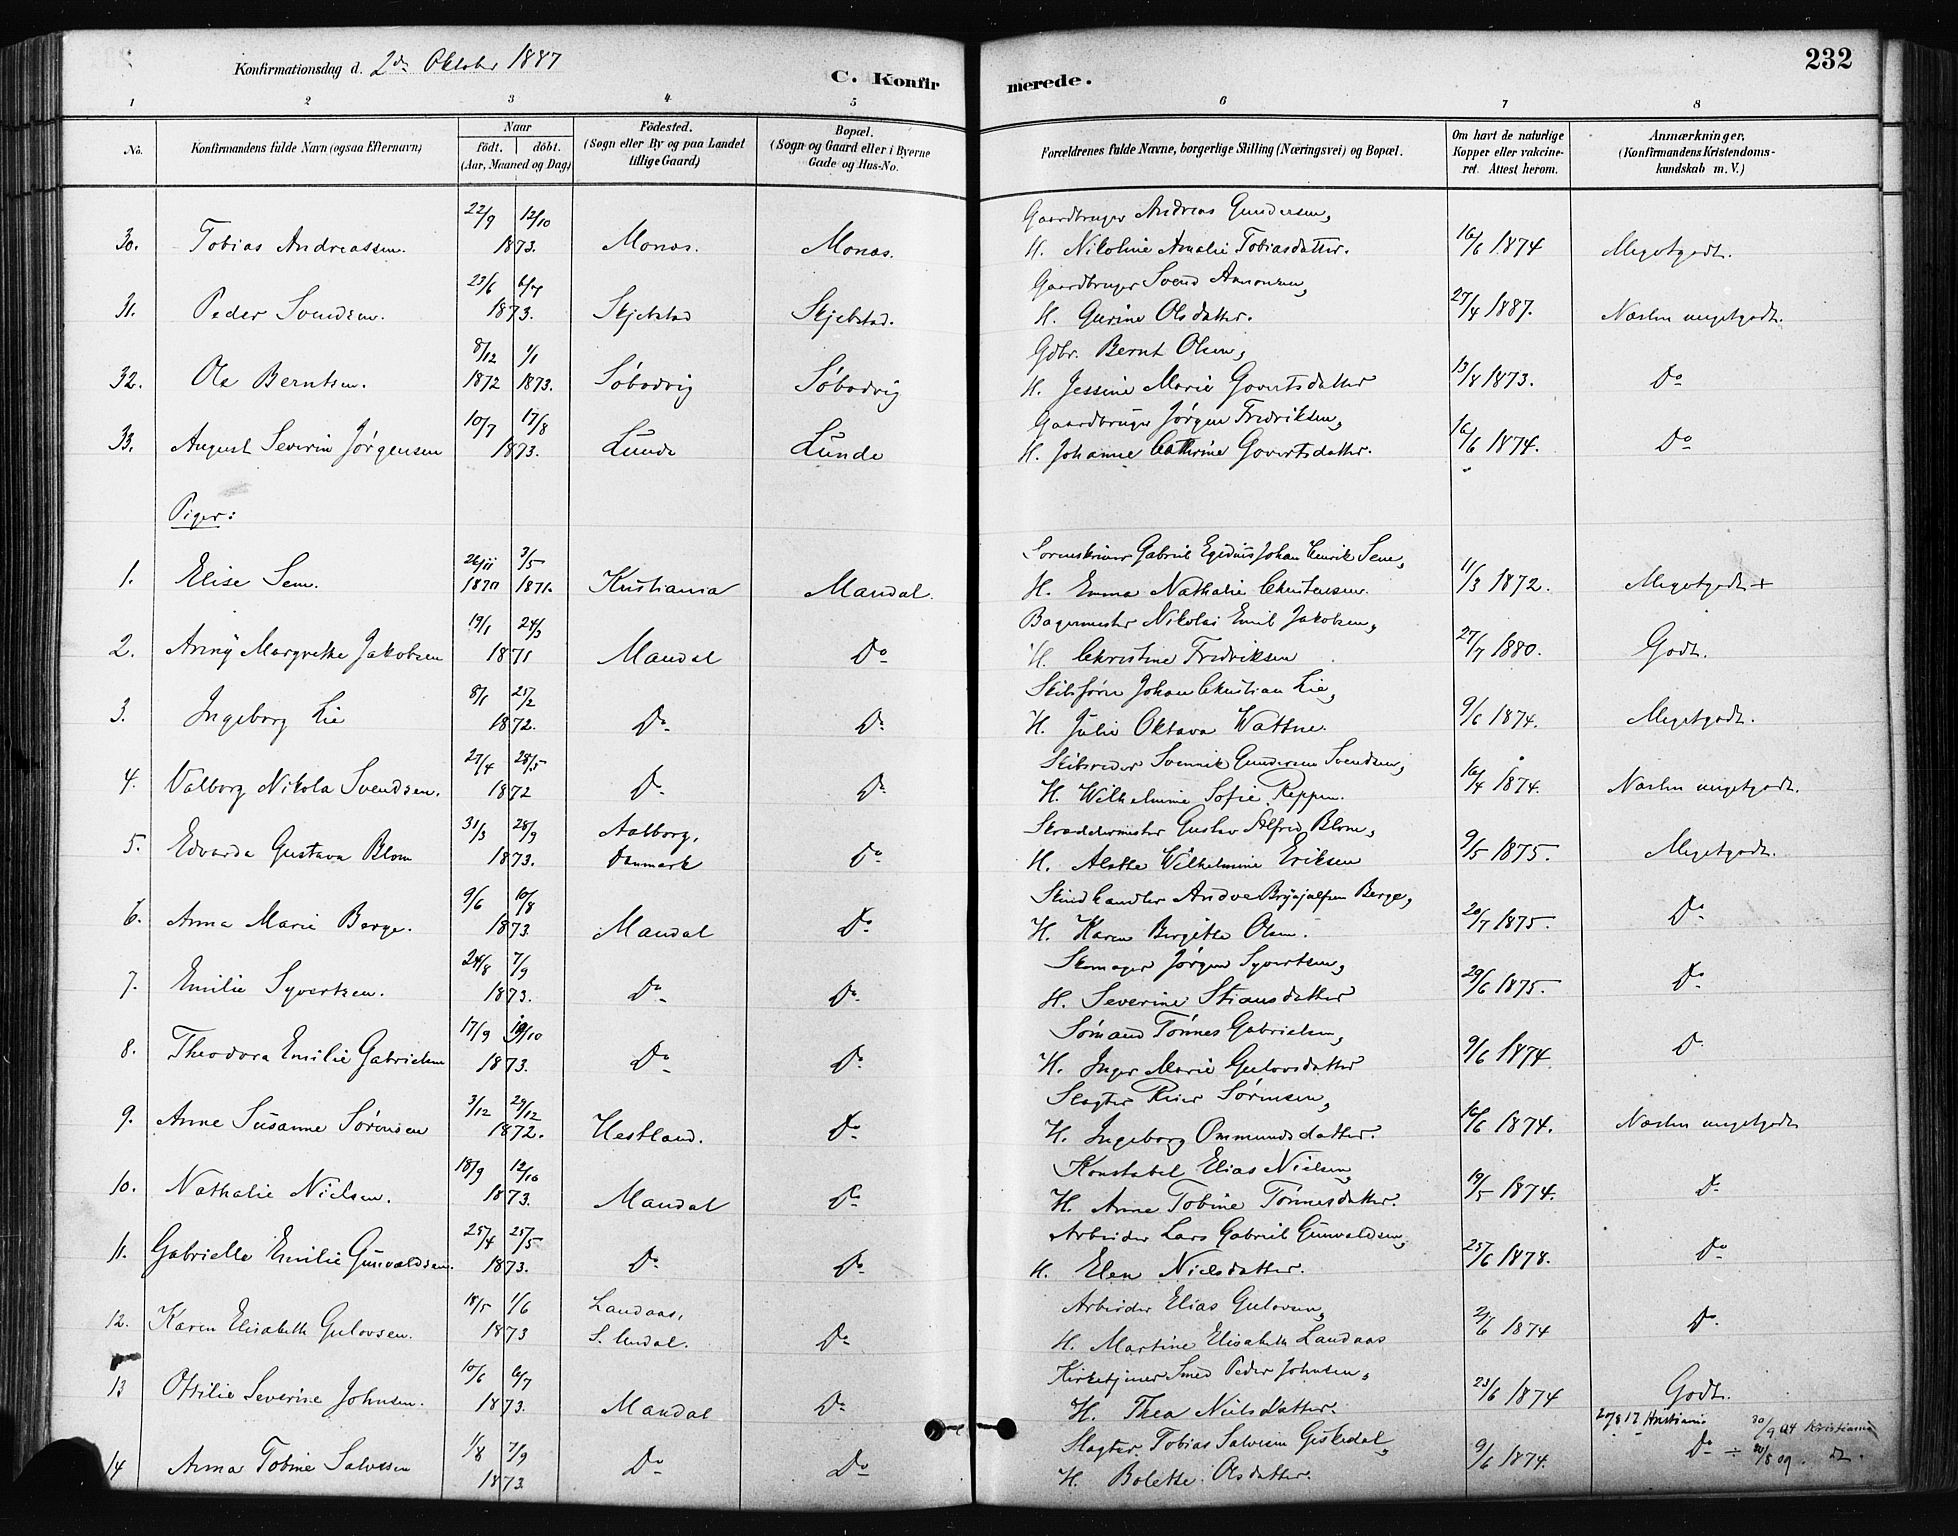 Konfirmationsdag d. 2den Oktober 1887
C. Konfirmerede.
232
1 2 3 4 5 6 7 8
No.
Konfirmandens fulde Navn (ogsaa Efternavn)
Naar
födt. döbt.
(Aar, Maaned og Dag)
Födested.
(Sogn eller By og paa Landet tillige Gaard)
Bopæl.
(Sogn og Gaard eller i Byerne Gade og Hus-No.
Forældrenes fulde Navne, borgerlige Stilling (Næringsvei) og Bopæl.
Om havt de naturlige Kopper eller vakcineret. Attest herom.
Anmærkninger.
(Konfirmandens Kristendomskundskab m. V.)
30. Tobias Andreassen. 22/9 12/10 1873. Monas. Monas. Gaardbruger Andreas Gundersen, H. Nikoline Amalie Tobiasdatter. 16/6 1874 Megetgodt.
31. Peder Svendsen. 23/6 6/7 1873. Skjebstad Skjebstad. Gaardbruger Svend Aanonsen, H. Gurine Olsdatter. 27/4 1887. Næsten megetgodt.
32. Ole Berntsen. 8/12 1872 1/1 1873. Söbodvig Söbodvig Gdbr. Bernt Olsen, H. Jessine Marie Govertsdatter 13/8 1873. Do
33. August Severin Jörgensen 10/7 17/8 1873. Lunde Lunde Gaardbruger Jörgen Fredriksen, H. Johanne Cathrine Govertsdatter. 16/6 1874. Do
Piger:
1. Elise Sem. 26/11 1870 3/5 1871. Kristiania Mandal. Sorenskriver Gabriel Egidius Johan Henrik Sem, H. Emma Nathalie Christensen. 11/3 1872. Megetgodt +
2. Anny Margrethe Jakobsen 19/1 24/3 1871 Mandal Do Bagermester Nikolai Emil Jakobsen, H. Christine Fredriksen 27/7 1880. Godt.
3. Ingeborg Lie 8/1 25/2 1872. Do Do Skibsförer Johan Christian Lie, H. Julie Oktava Wattne. 9/6 1874. Megetgodt.
4. Valborg Nikola Svendsen. 27/4 28/5 1872 Do Do Skibsreder Svennik Gundersen Svendsen, H. Wilhelmine Sofie Reppen. 16/4 1874. Næsten megetgodt.
5. Edvarda Gustava Blom 31/3 28/9 1873. Aalborg, Danmark Do Skræddermester Gustav Alfred Blom, H. Alethe Wilhelmine Eriksen 9/5 1875. Megetgodt.
6. Anna Marie Berge. 9/6 10/8 1873. Mandal Do Skindhandler Berge, H. Karen Birgitte Olsen. 20/7 1875. Do
7. Emilie Syvertsen. 24/8 7/9 1873. Do Do Skomager Jörgen Syvertsen, H. Severine Stiansdatter 29/6 1875. Do
8. Theodora Emilie Gabrielsen 17/9 19/10 1873. Do Do Sömand Tönnes Gabrielsen, H. Inger Marie Gulovsdatter 9/6 1874. Do
9. Anne Susanne Sörensen 3/12 29/12 1872. Hestland. Do Slagter Reier Sörensen, H. Ingeborg Ommundsdatter. 16/6 1874. Næsten megetgodt
10. Nathalie Nielsen. 18/9 12/10 1873. Mandal Do Konstabel Elias Nielsen, H. Anne Tobine Tönnesdatter. 19/5 1874. Do
11. Gabrielle Emilie Gunvaldsen. 25/4 25/5 1873. Do Do Arbeider Lars Gabriel Gunvaldsen, H. Elen Nielsdatter. 25/6 1878. Do
12. Karen Elisabeth Gulovsen. 18/5 1/6 1873 Landaas, S. Undal. Do Arbeider Elias Gulovsen, H. Martine Elisabeth Landaas 2/6 1874 Do
13 Ottilie Severine Johnsen. 10/6 6/7 1873. Mandal Do Kirketjener Smed Peder Johnsen, H. Thea Nielsdatter. 23/6 1874 Godt.
20/8 17 Kristiania 30/9 04 Kristiania
14 Anna Tobine Salvesen 1/8 7/9 1873. Do Do Slagter Tobias Salvesen Giskedal, H. Bolette Olsdatter. 9/6 1874. Do ÷ 20/8 09. Dt.